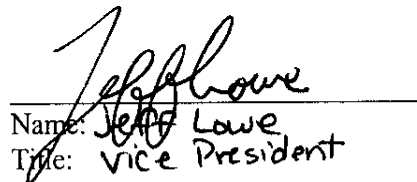 Jeff Lowe
Name: Jeff Lowe
Title: Vice President